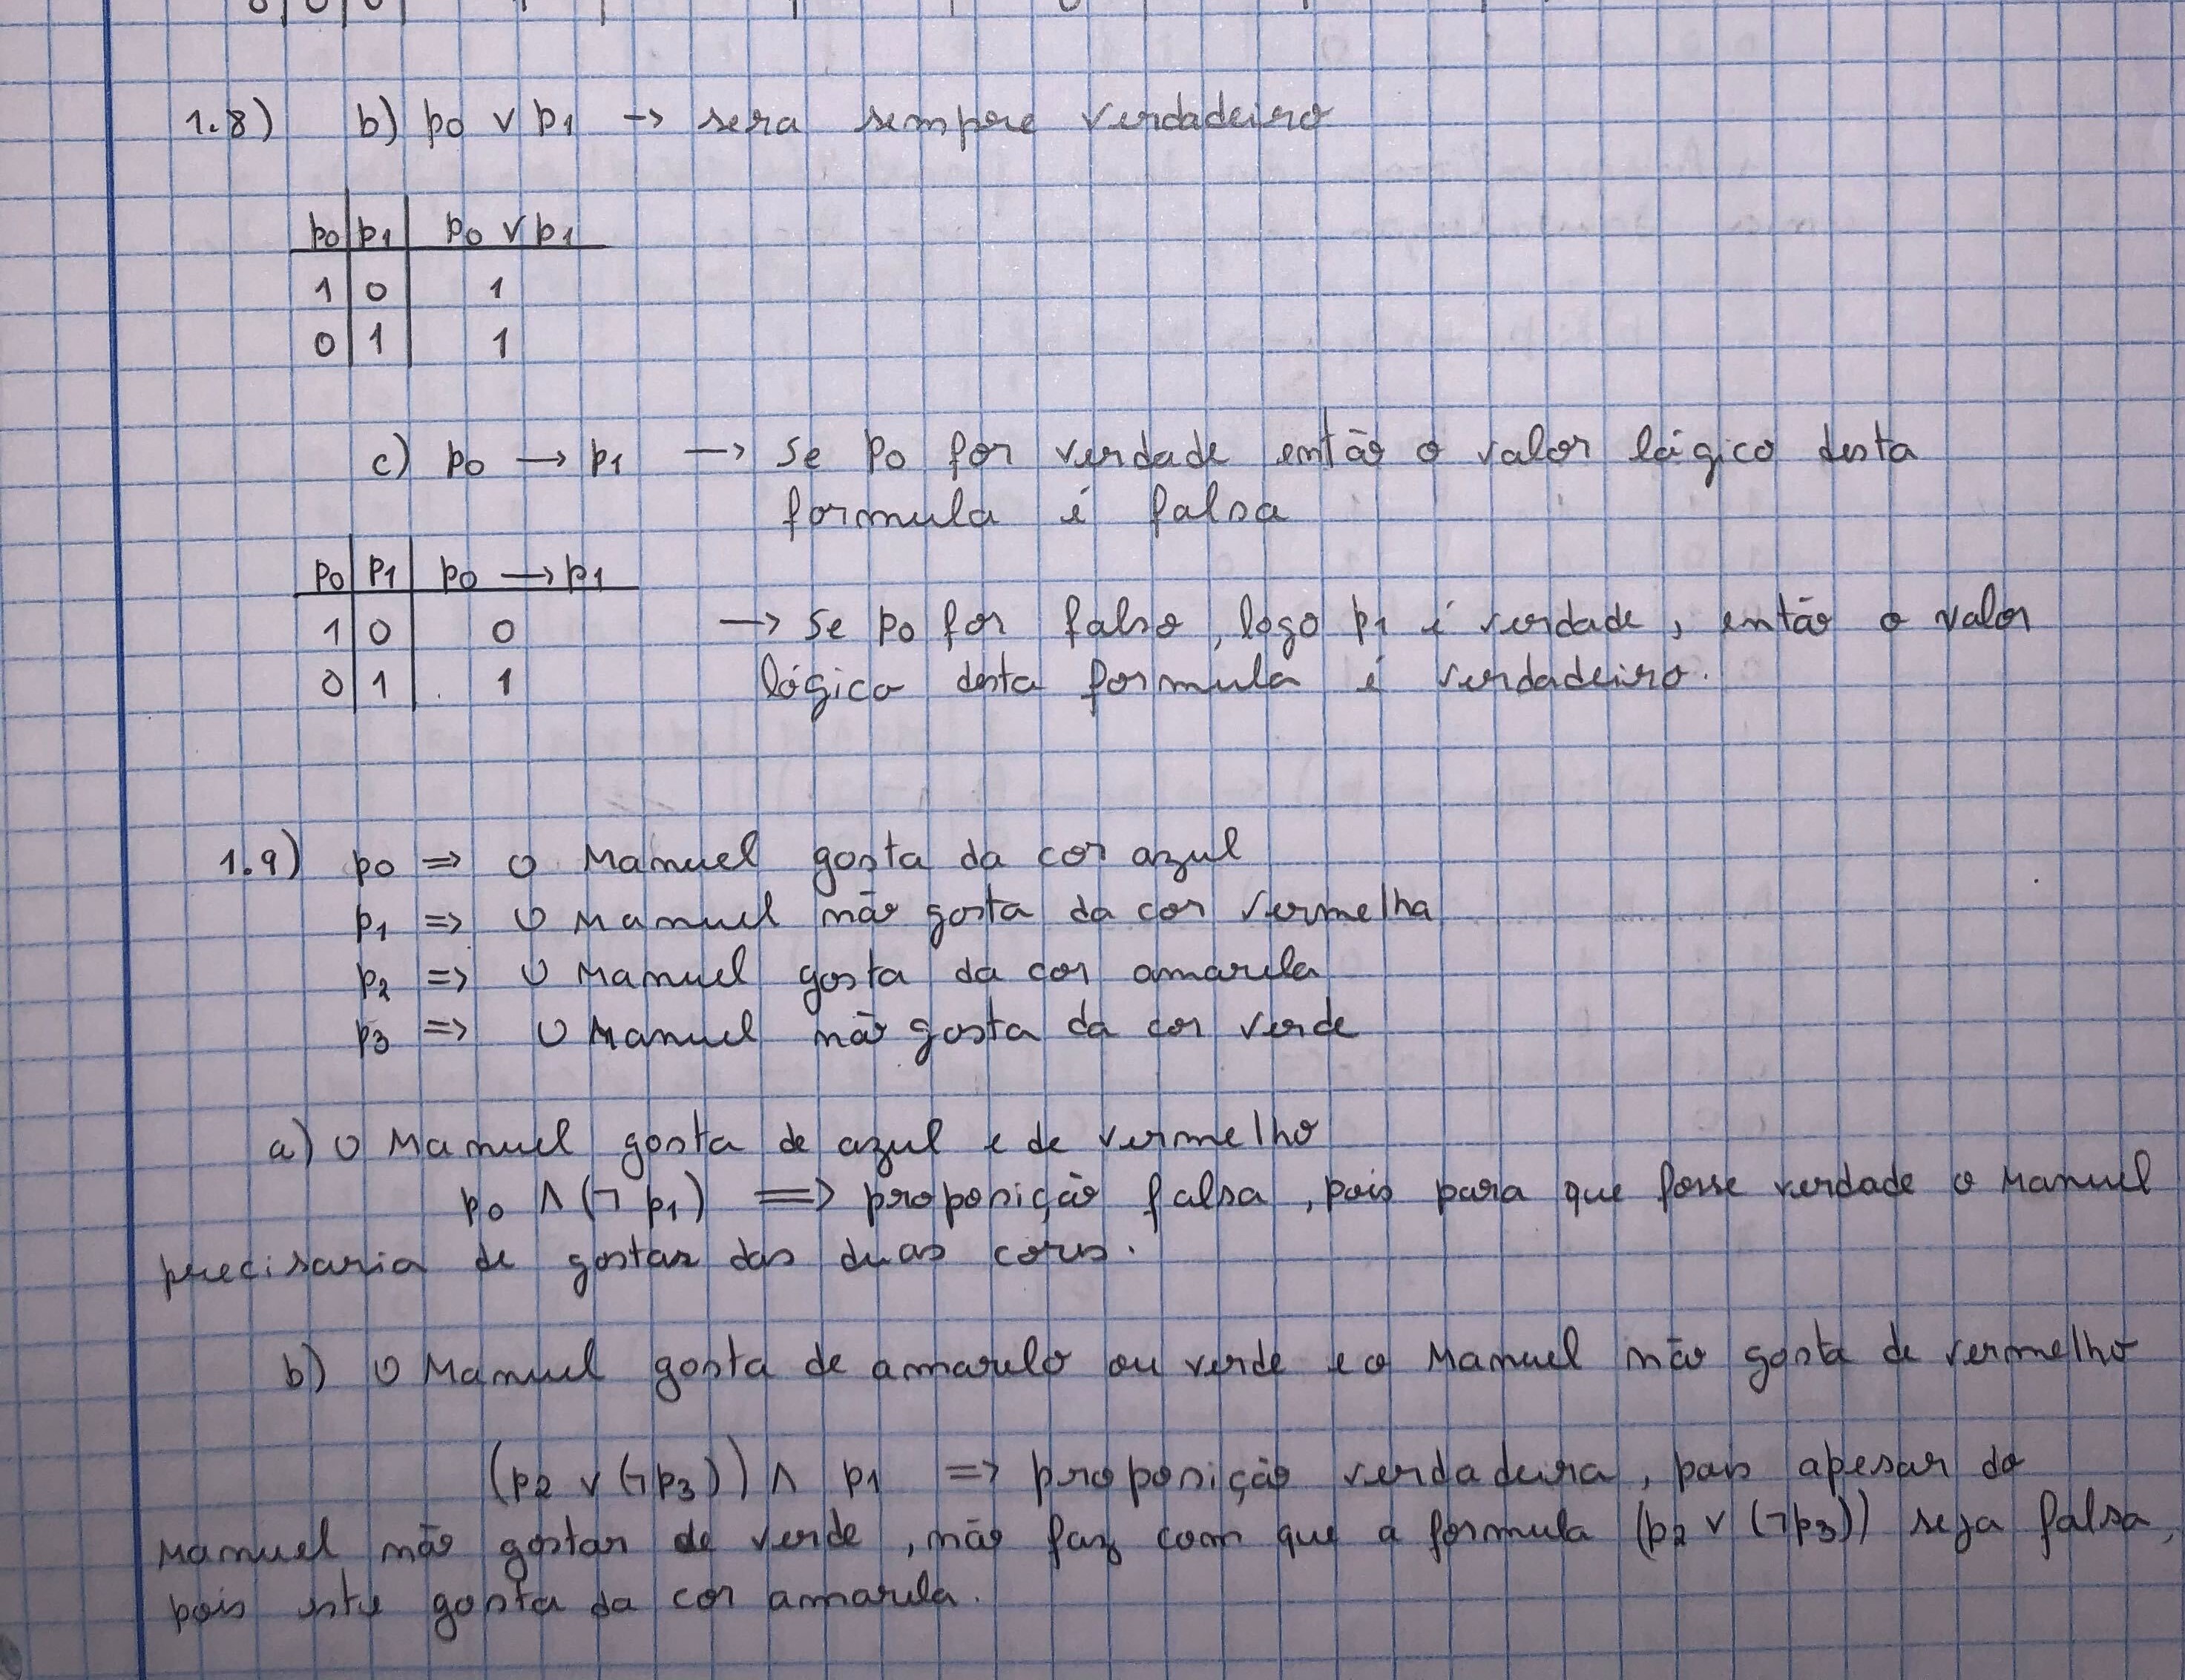 1.8) b) p0 ∨ p1 → sera sempre verdadeiro
p0 | p1 | p0 ∨ p1
1 | 0 | 1
0 | 1 | 1
c) p0 → p1 → Se p0 for verdade então o valor lógico desta
formula é falsa
p0 | p1 | p0 → p1
1 | 0 | 0
0 | 1 | 1
→ Se p0 for falso, logo p1 é verdade, então o valor
lógico desta formula é verdadeiro.
1.9) p0 => O Manuel gosta da cor azul
p1 => O Manuel não gosta da cor vermelha
p2 => O Manuel gosta da cor amarela
p3 => O Manuel não gosta da cor verde
a) O Manuel gosta de azul e de vermelho
p0 ∧ (¬ p1) => proposição falsa, pois para que fosse verdade o Manuel
precisaria de gostar das duas cores.
b) O Manuel gosta de amarelo ou verde e o Manuel não gosta de vermelho
(p2 ∨ (¬p3)) ∧ p1 => proposição verdadeira, pois apesar do
Manuel não gostar de verde, não faz com que a formula (p2 ∨ (¬p3)) seja falsa,
pois este gosta da cor amarela.